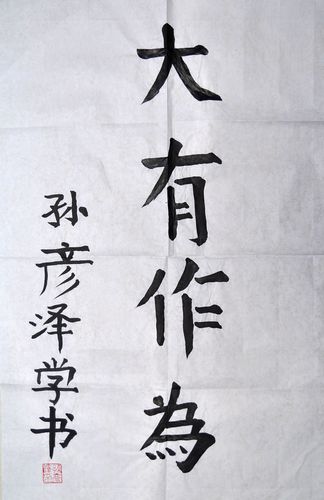 大有作為
孙彦泽学书